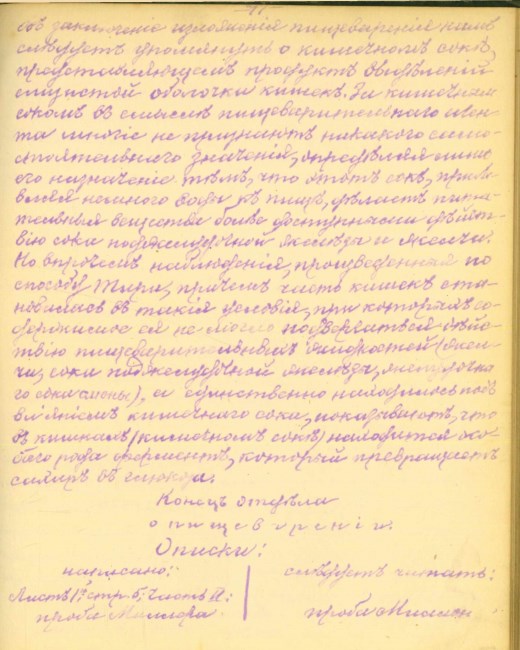 въ заключеніе изложенія пищеваренія намъ
слѣдуетъ упомянуть о кишечномъ сокѣ,
представляющемъ продуктъ выдѣленій
слизистой оболочки кишекъ. За кишечнымъ
сокомъ въ смыслѣ пищеварительнаго аген-
та многіе не признаютъ никакого само-
стоятельнаго значенія, опредѣляя лишь
его назначеніе тѣмъ, что этотъ сокъ, приба-
вляя немного воды къ пищѣ, дѣлаетъ пита-
тельныя вещества болѣе доступными дѣйст-
вію сока поджелудочной железы и желчи.
Но впрочемъ наблюденія, произведенныя по
способу Тири, причемъ часть кишекъ ста-
новилась въ такія условія, при которыхъ со-
держимое ея не могло подвергаться дѣйс-
твію пищеварительныхъ жидкостей (жел-
чи, сока поджелудочной железы, желудочна-
го сока слюны), а единственно находилось подъ
вліяніемъ кишечнаго сока, показываютъ, что
въ кишкахъ (кишечномъ сокѣ) находится осо-
баго рода ферментъ, который превращаетъ
сахаръ въ
Конецъ отдѣла
о пищевареніи.
Описки:
написано:
слѣдуетъ читать:
Листъ 1й стр. 5; часть II:
проба
проба